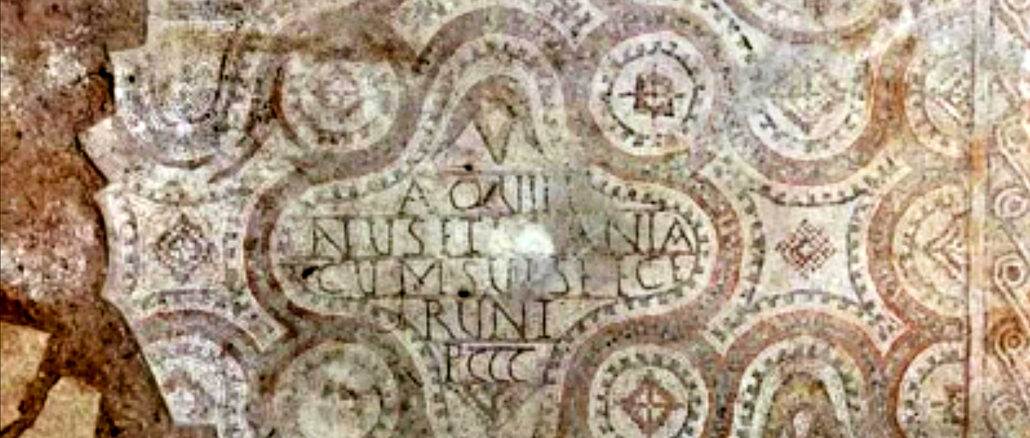 A QUILI
NIUS ET ANIA
CUM SUIS FECE
RUNT
P CCCC